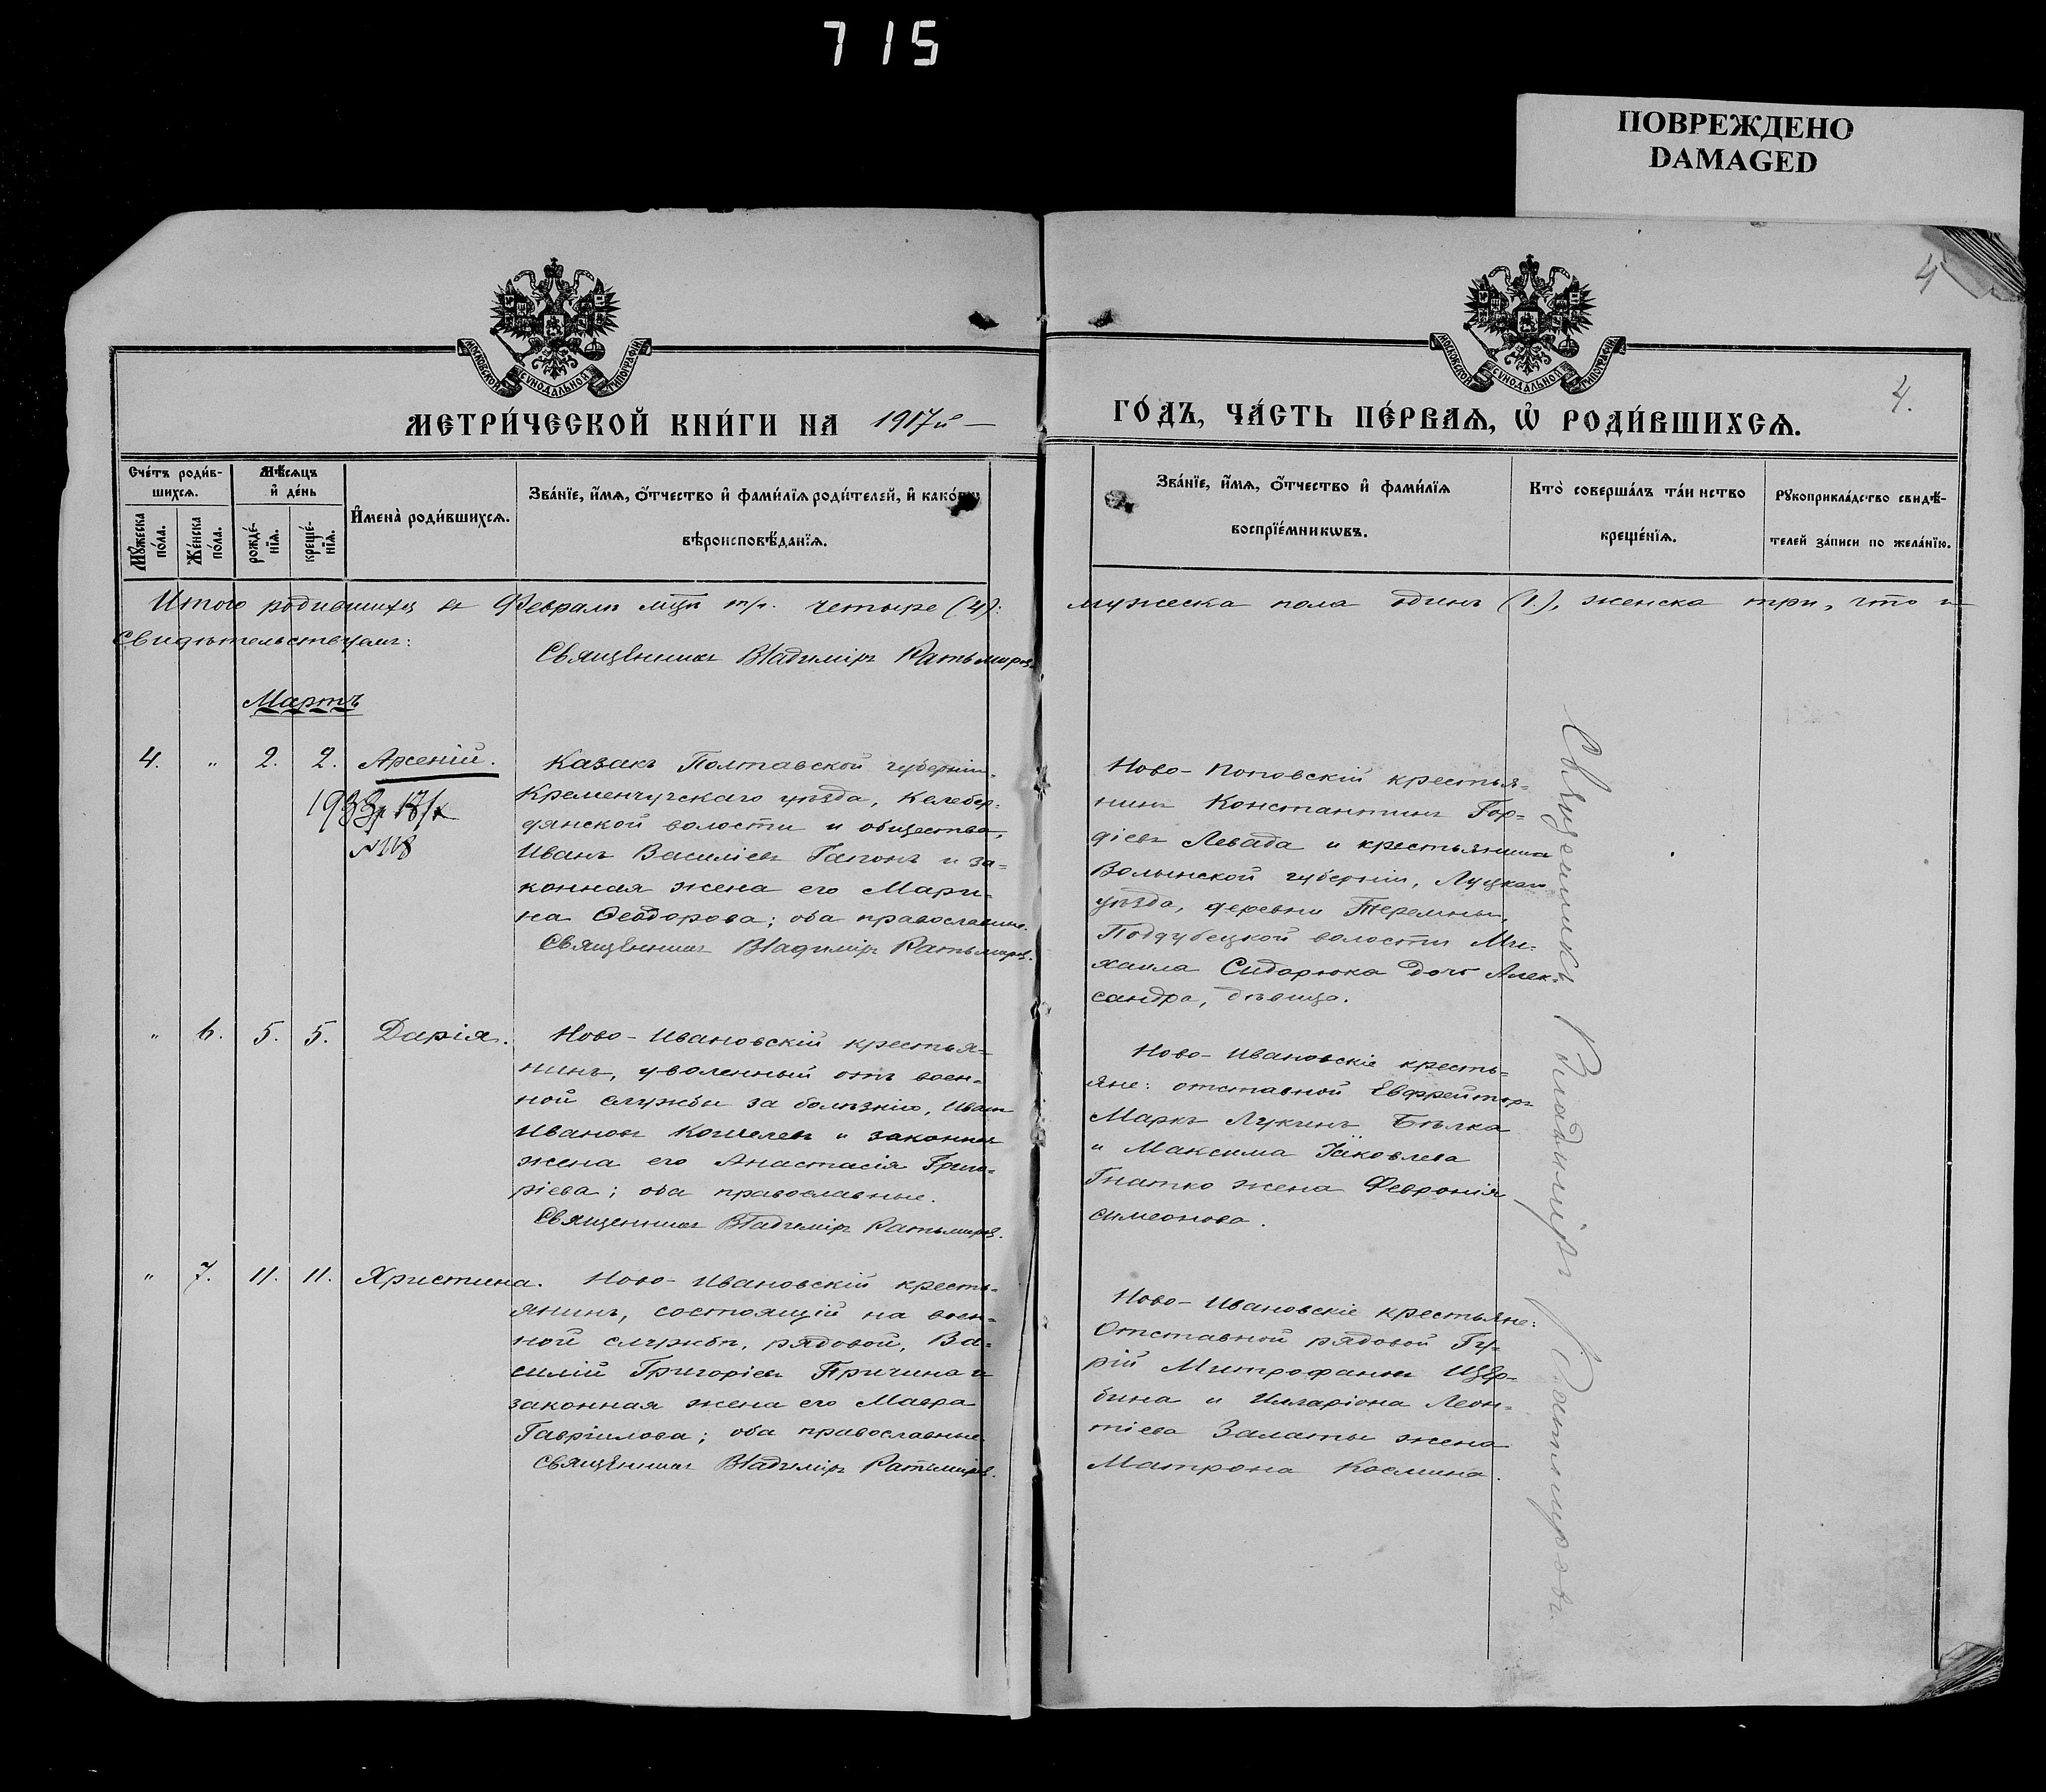 715
ПОВРЕЖДЕНО
DAMAGED
4
4.
МОСКОВСКОЙ СѴНОДАЛЬНОЙ ТИПОГРАФІИ
МОСКОВСКОЙ СѴНОДАЛЬНОЙ ТИПОГРАФІИ
МЕТРИ́ЧЕСКОЙ КНИ́ГИ НА 1917й
ГО́ДЪ, ЧА́СТЬ ПЕ́РВАѦ, Ѡ҆ РОДИ́ВШИХСѦ.
Сче́тъ роди́в-
шихсѧ.
Мѣ́сѧцъ
и҆ де́нь
Мꙋ́жеска
по́ла.
Же́нска
по́ла.
рожде́-
нїѧ.
креще́-
нїѧ.
И҆мена̀ роди́вшихсѧ.
Зва́нїе, и҆́мѧ, ѻ҆́тчество и҆ фами́лїѧ роди́телей, и҆ како́гѡ
вѣроисповѣ́данїѧ.
Зва́нїе, и҆́мѧ, ѻ҆́тчество и҆ фами́лїѧ
воспрїе́мникѡвъ.
Кто̀ соверша́лъ та́инство
креще́нїѧ.
Рꙋкоприкла́дство свидѣ́-
телей за́писи по жела́нїю.
Итого родившихся въ Февралѣ мцѣ т/г. четыре (4):
мужеска пола одинъ (1.), женска три, что и
свидѣтельствуемъ:
Священникъ Владиміръ Ратьмировъ
Мартъ
4. " 2. 2. Арсеній.
№ 118
Казакъ Полтавской губерніи,
Кременчугскаго уѣзда, Келебер-
дянской волости и общества,
Иванъ Василіевъ Гапонъ и за-
конная жена его Мари-
на Ѳеодорова; оба православные.
Священникъ Владиміръ Ратьмировъ.
Ново-Поповскій крестья-
нинъ Константинъ Гор-
діевъ Левада и крестьянина
Волынской губерніи, Луцкаго
уѣзда, деревни Теремны,
Поддубецкой волости Ми-
хаила Сидорюка дочь Алек-
сандра, дѣвица.
" 6. 5. 5. Дарія.
Ново-Ивановскій крестья-
нинъ, уволенный отъ воен-
ной службы за болѣзнію, Иванъ
Ивановъ Кошелевъ и законная
жена его Анастасія Григо-
ріева; оба православные.
Священникъ Владиміръ Ратьмировъ.
Ново-Ивановскіе кресть-
яне: отставной Евфрейторъ
Маркъ Лукинъ Бѣлка
и Максима Іаковлева
Гнатко жена Февронія
Симеонова.
" 7. 11. 11. Христина.
Ново-Ивановскій кресть-
янинъ, состоящій на воен-
ной службѣ, рядовой, Ва-
силій Григоріевъ Причина и
законная жена его Мавра
Гавріилова; оба православные
Священникъ Владиміръ Ратьмировъ.
Ново-Ивановскіе крестьяне:
Отставной рядовой Гу-
рій Митрофановъ Щер-
бина и Иларіона Леон-
тіева Залаты жена
Матрона Космина.
Священникъ Владиміръ Ратьмировъ.